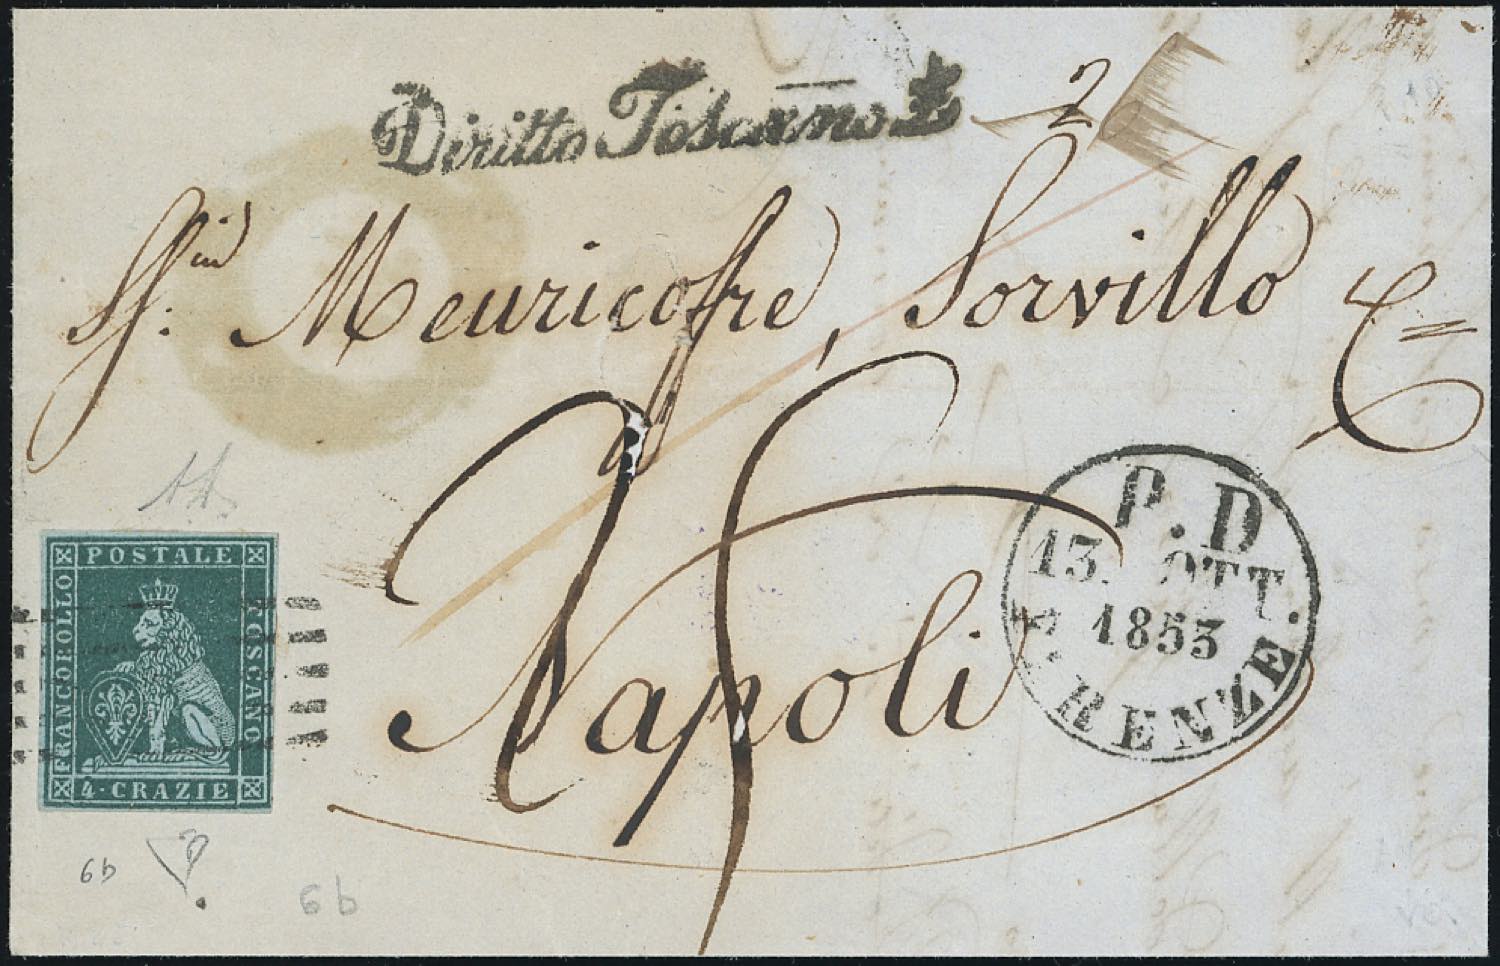 Diritto Toscano £ 2
Meuricoffre, Sorvillo &=
Napoli
P.D
13. OTT.
1853
FIRENZE
POSTALE
FRANCOBOLLO
TOSCANO
4·CRAZIE
6b
6b